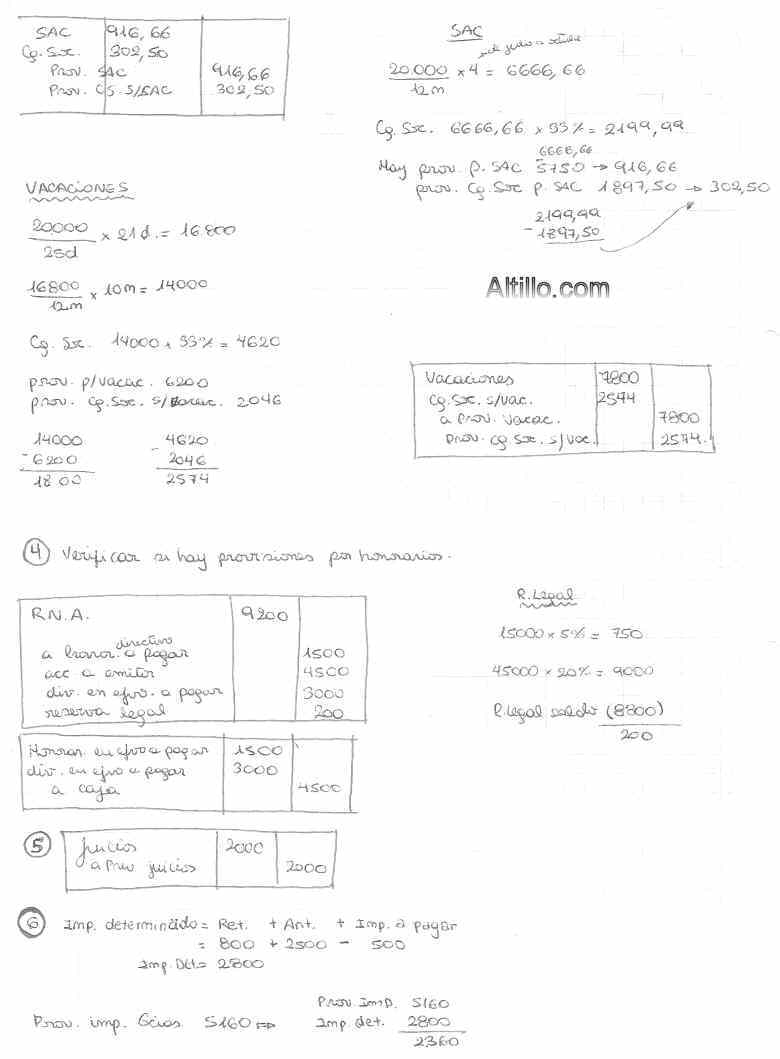 SAC 916,66
Cg. Soc. 302,50
Prov. SAC 916,66
Prov. CS. S/SAC 302,50
SAC
20.000 / 12m × 4 = 6666,66
Cg. Soc. 6666,66 × 33% = 2199,99
6666,66
Hay prov. p. SAC 5750 → 916,66
prov. Cg. Soc p. SAC 1897,50 → 302,50
2199,99
-1897,50
Altillo.com
VACACIONES
20000 / 25d × 21d. = 16.800
16800 / 12m × 10m = 14000
Cg. Soc. 14000 × 33% = 4620
prov. p/vacac. 6200
prov. Cg. Soc. s/vacac. 2046
14000 4620
-6200 -2046
1800 2574
Vacaciones 7800
Cg. Soc. s/vac. 2574
a Prov. Vacac. 7800
Prov. Cg Soc. s/vac. 2574.
④ Verificar si hay provisiones por honorarios.
R.N.A. 9200
directivo
a honor. a pagar 1500
acc a emitir 4500
div. en efvo. a pagar 3000
reserva legal 200
R. Legal
15000 × 5% = 750
45000 × 20% = 9000
R. legal saldo (8300)
200
Honorar. en efvo a pagar 1500
div. en efvo a pagar 3000
a caja 4500
⑤ Juicios 2000
a Prev juicios 2000
⑥ Imp. determinado = Ret. + Ant. + Imp. a pagar
= 800 + 2500 - 500
Imp. Det = 2800
Prov. Imp. 5160
Prov. imp. Gcias 5160 ⇒ Imp. det. 2800
2360